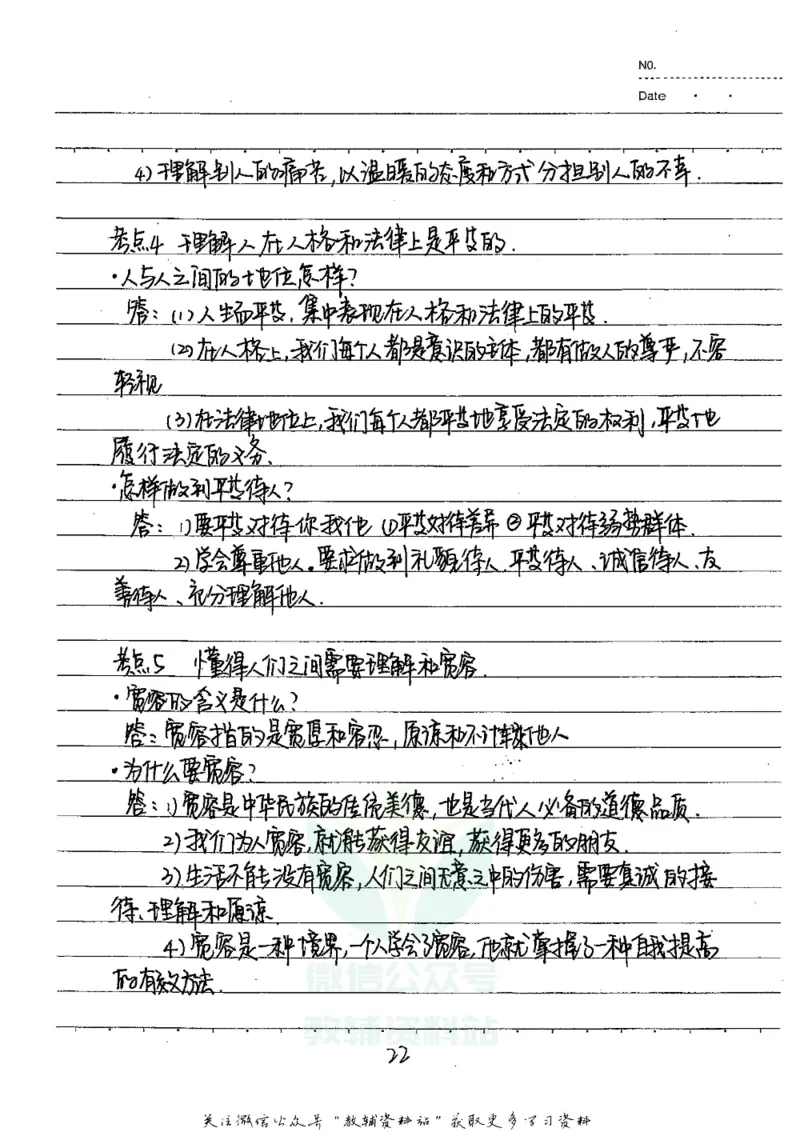 NO.
Date
4)理解别人的痛苦,以温暖的态度和方式分担别人的不幸.
考点4 理解人在人格和法律上是平等的.
·人与人之间的地位怎样?
答:(1)人生而平等,集中表现在人格和法律上的平等.
(2)在人格上,我们每个人都是意识的主体,都有做人的尊严,不容
轻视
(3)在法律地位上,我们每个人都平等地享受法定的权利,平等地
履行法定的义务.
·怎样做到平等待人?
答:1)要平等对待你我他 ①平等对待差异 ②平等对待弱势群体.
2)学会尊重他人。要求做到礼貌待人、平等待人、诚信待人、友
善待人、充分理解他人.
考点5 懂得人们之间需要理解和宽容.
·宽容的含义是什么?
答:宽容指的是宽厚和容忍,原谅和不计较他人
·为什么要宽容?
答:1)宽容是中华民族的传统美德,也是当代人必备的道德品质.
2)我们为人宽容,就能获得友谊,获得更多的朋友.
3)生活不能没有宽容,人们之间无意之中的伤害,需要真诚的接
待、理解和原谅.
4)宽容是一种境界,一个人学会了宽容,他就掌握了一种自我提高
的有效方法.
微信公众号
教辅资料站
22
关注微信公众号"教辅资料站"获取更多学习资料